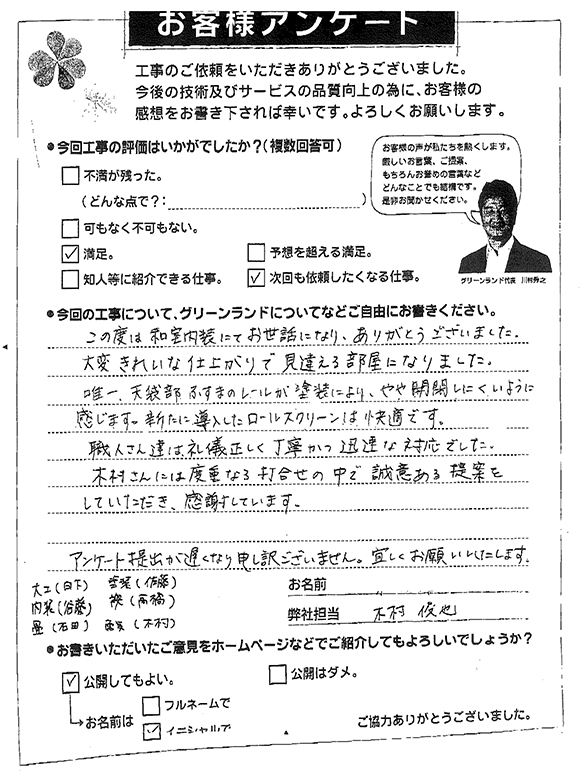 お客様アンケート
工事のご依頼をいただきありがとうございました。
今後の技術及びサービスの品質向上の為に、お客様の
感想をお書き下されば幸いです。よろしくお願いします。
●今回工事の評価はいかがでしたか?(複数回答可)
不満が残った。
(どんな点で?: )
可もなく不可もない。
満足。
予想を超える満足。
知人等に紹介できる仕事。
次回も依頼したくなる仕事。
お客様の声が私たちを動くします。
厳しいお言葉、ご提案、
もちろんお褒めの言葉など
どんなことでも結構です。
是非お聞かせください。
グリーンランド代表 川村秀之
●今回の工事について、グリーンランドについてなどご自由にお書きください。
この度は和室内装にてお世話になり、ありがとうございました。
大変きれいな仕上がりで見違える部屋になりました。
唯一、天袋部ふすまのレールが塗装により、やや開閉しにくいように
感じます。新たに導入したロールスクリーンは快適です。
職人さん達は礼儀正しく丁寧かつ迅速な対応でした。
木村さんには度重なる打合せの中で誠意ある提案を
していただき、感謝しています。
アンケート提出が遅くなり申し訳ございません。宜しくお願いいたします。
大工(日下) 塗装(佐藤)
内装(後藤) 襖(高橋)
畳(石田) (木村)
お名前
弊社担当 木村 俊也
●お書きいただいたご意見をホームページなどでご紹介してもよろしいでしょうか?
公開してもよい。
公開はダメ。
お名前は
フルネームで
イニシャルで
ご協力ありがとうございました。